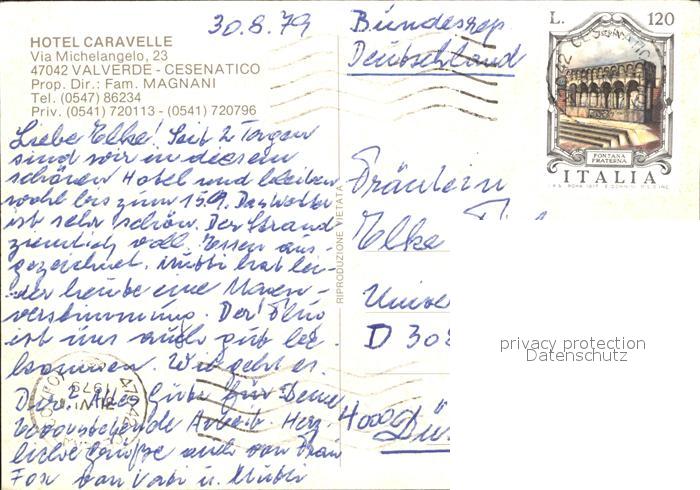 30.8.79
HOTEL CARAVELLE
Via Michelangelo, 23
47042 VALVERDE - CESENATICO
Prop. Dir.: Fam. MAGNANI
Tel. (0547) 86234
Priv. (0541) 720113 - (0541) 720796
Liebe Elke! Seit 2 Tagen
sind wir in diesem
schönen Hotel und bleiben
wohl bis zum 15.9. Das Wetter
ist sehr schön. Der Strand
ziemlich voll. Essen aus-
gezeichnet. Mutti hat lei-
der heute eine Magen-
verstimmung. Der Flug
ist uns auch gut be-
kommen. Wie geht es
Dir? Alles Gute für Deine
bevorstehende Arbeit. Herz-
liche Grüße auch von Frau
Fox von Vati u. Mutti
RIPRODUZIONE VIETATA
Bundesrep
Deutschland
L. 120
FONTANA
FRATERNA
ITALIA
Fräulein
Elke
D 308
4000 Dü
privacy protection
Datenschutz